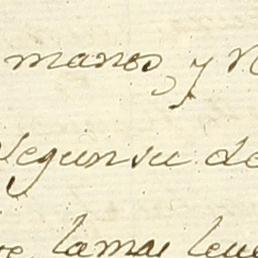 manos, y
segun su de
la mas leve